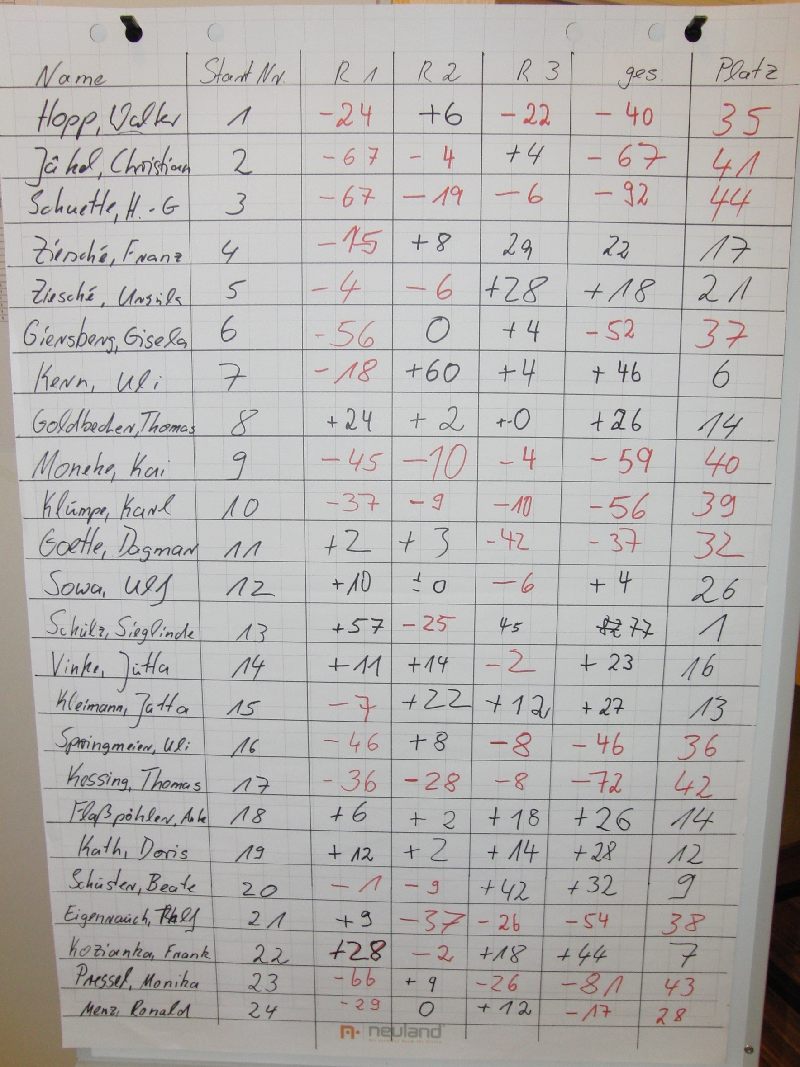 Name Start Nr. R 1 R 2 R 3 ges. Platz
Hopp, Walter 1 -24 +6 -22 -40 35
Jäkel, Christian 2 -67 -4 +4 -67 41
Schuette, H.-G 3 -67 -19 -6 -92 44
Ziesché, Franz 4 -15 +8 29 22 17
Ziesché, Ursula 5 -4 -6 +28 +18 21
Giersberg, Gisela 6 -56 0 +4 -52 37
Kern, Uli 7 -18 +60 +4 +46 6
Goldbecker, Thomas 8 +24 +2 +-0 +26 14
Moneke, Kai 9 -45 -10 -4 -59 40
Klümpe, Karl 10 -37 -9 -10 -56 39
Goette, Dagmar 11 +2 +3 -42 -37 32
Sowa, Ulf 12 +10 ±0 -6 +4 26
Schülz, Sieglinde 13 +57 -25 45 77 1
Vinke, Jutta 14 +11 +14 -2 +23 16
Kleimann, Jutta 15 -7 +22 +12 +27 13
Springmeier, Uli 16 -46 +8 -8 -46 36
Kessing, Thomas 17 -36 -28 -8 -72 42
Flaßpöhler, Anke 18 +6 +2 +18 +26 14
Kath, Doris 19 +12 +2 +14 +28 12
Schüster, Beate 20 -1 -9 +42 +32 9
Eigenrauch, Ralf 21 +9 -37 -26 -54 38
Kozianka, Frank 22 +28 -2 +18 +44 7
Pressel, Monika 23 -66 +9 -26 -81 43
Menz, Ronald 24 -29 0 +12 -17 28
neuland